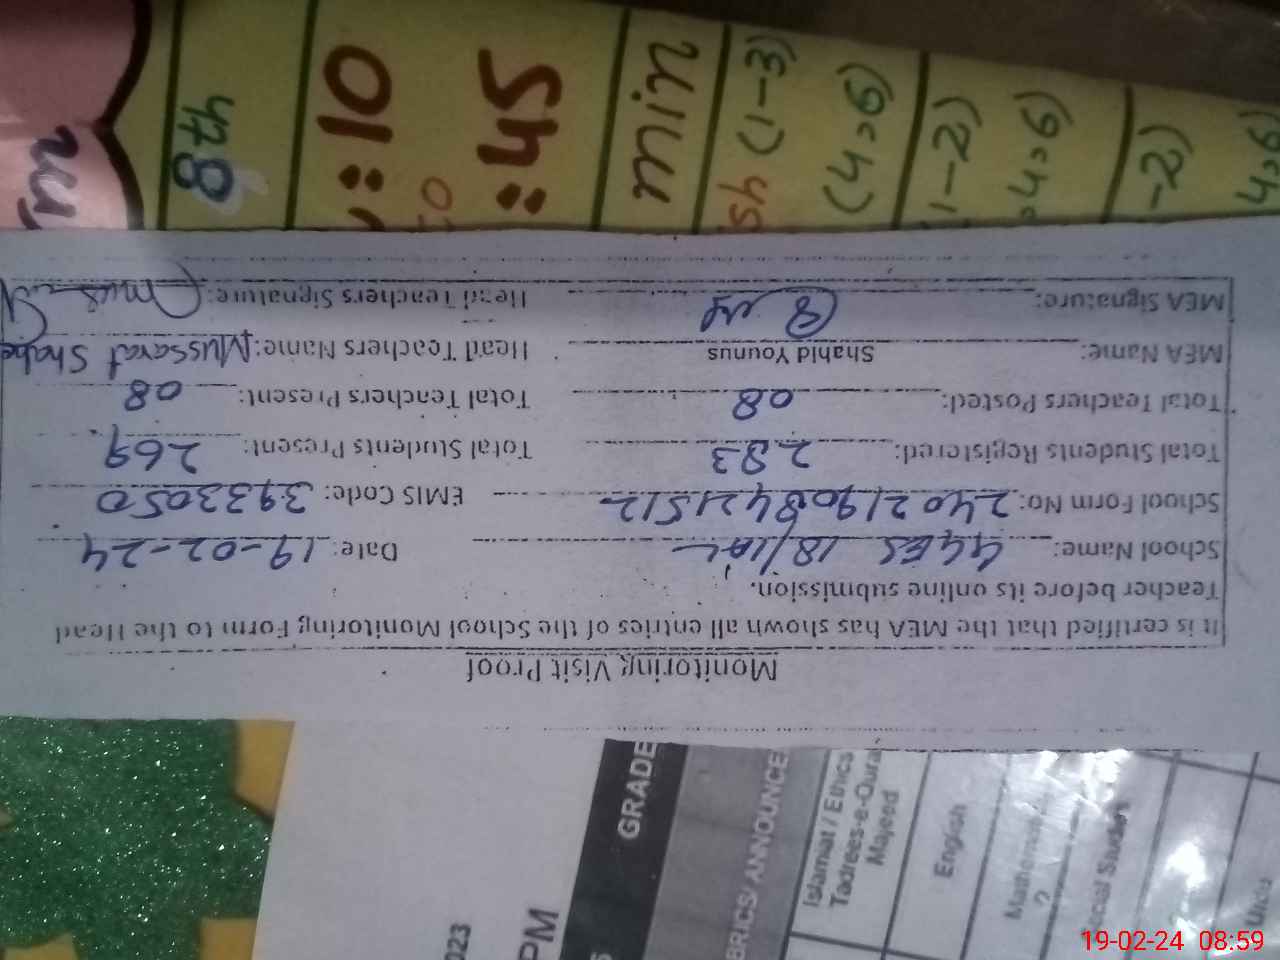 Monitoring Visit Proof
It is certified that the MEA has shown all entries of the School Monitoring Form to the Head
Teacher before its online submission.
School Name: GGES 18/11AL Date: 19-02-24
School Form No: 24021908421512 EMIS Code: 3933050
Total Students Registered: 283 Total Students Present: 269
Total Teachers Posted: 08 Total Teachers Present: 08
MEA Name: Shahid Younus Head Teachers Name: Mussarat
MEA Signature: Head Teachers Signature:
478
:10
:45
min
(1-3)
(4→6)
1-2)
4→6)
-2)
4→6)
GRADE
BRICS/ ANNOUNCE
Islamiat / Ethics
Tadrees-e-Qura
Majeed
English
023
PM
19-02-24 08:59